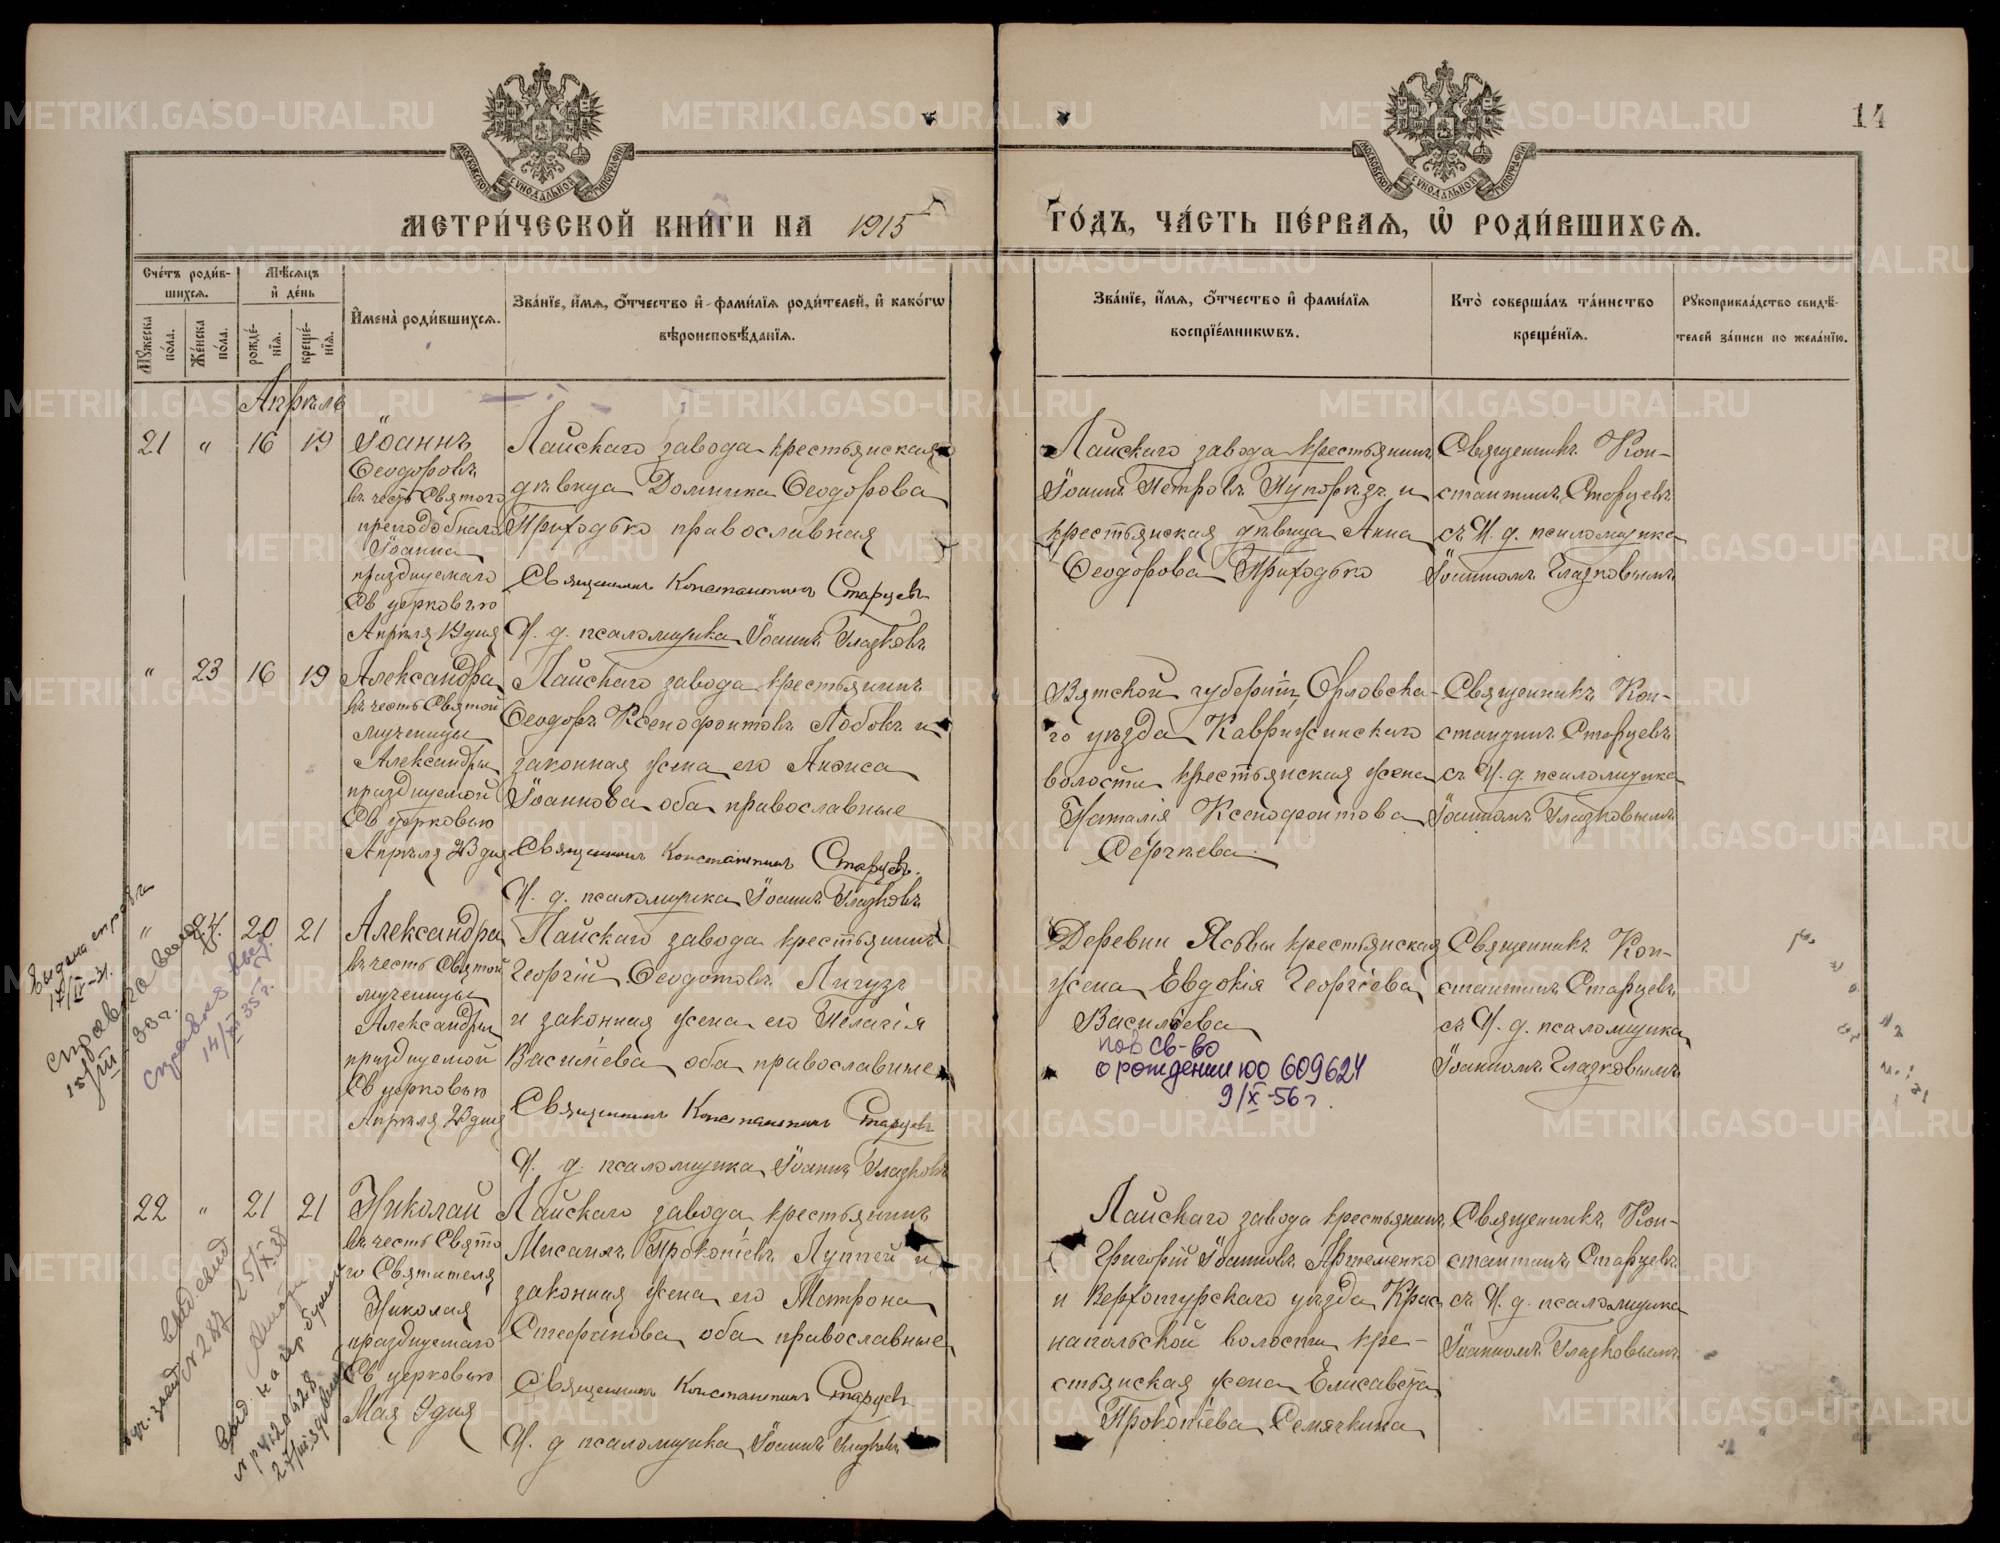 14
МЕТРИ́ЧЕСКОЙ КНИ́ГИ НА 1915 ГО́ДЪ, ЧА́СТЬ ПЕ́РВАѦ, Ѡ҆ РОДИ́ВШИХСѦ.
Сче́тъ роди́в-
шихсѧ.
Мꙋ́жеска по́ла.
Же́нска по́ла.
Мѣ́сѧцъ
и҆ де́нь
рожде́-
нїѧ.
креще́-
нїѧ.
И҆мена̀ роди́вшихсѧ.
Зва́нїе, и҆́мѧ, ѻ҆́тчество и҆ фами́лїѧ роди́телей, и҆ како́гѡ
вѣроисповѣ́данїѧ.
Зва́нїе, и҆́мѧ, ѻ҆́тчество и҆ фами́лїѧ
воспрїе́мникѡвъ.
Кто̀ соверша́лъ та́инство
креще́нїѧ.
Рꙋкоприкла́дство свидѣ́-
телей за́писи по жела́нїю.
Апрѣль
21 " 16 19
Іоаннъ
Ѳеодоровъ
въ честь Святого
преподобнаго
Іоанна
празднуемаго
Св церковью
Апрѣля 19 дня
Лайскаго завода крестьянская
дѣвица Домника Ѳеодорова
Приходько православная
Священникъ Константинъ Старцевъ
И. д. псаломщика Іоаннъ Глазковъ
Лайскаго завода крестьянинъ
Іоаннъ Петровъ и
крестьянская дѣвица Анна
Ѳеодорова Приходько
Священникъ Кон-
стантинъ Старцевъ
съ И. д. псаломщика
Іоанномъ Глазковымъ
" 23 16 19
Александра
въ честь Святой
мученицы
Александры
празднуемой
Св церковью
Апрѣля 23 дня
Лайскаго завода крестьянинъ
Ѳеодоръ Ксенофонтовъ Лобовъ и
законная жена его Анѳиса
Іоаннова оба православные
Священникъ Константинъ Старцевъ
И. д. псаломщика Іоаннъ Глазковъ
Вятской губерніи, Орловска-
го уѣзда
волости крестьянская жена
Наталія Ксенофонтова
Священникъ Кон-
стантинъ Старцевъ
съ И. д. псаломщика
Іоанномъ Глазковымъ
" 24. 20 21
Александра
въ честь Святой
мученицы
Александры
празднуемой
Св церковью
Апрѣля 23 дня
Лайскаго завода крестьянинъ
Георгій Ѳеодотовъ Лигузъ
и законная жена его Пелагія
Василіева оба православные
Священникъ Константинъ Старцевъ
И. д. псаломщика Іоаннъ Глазковъ
Деревни Ясьвы крестьянская
жена Евдокія Георгіева
Васильева
пов св-во
о рождении юо 609624
9/X-56 г.
Священникъ Кон-
стантинъ Старцевъ
съ И. д. псаломщика
Іоанномъ Глазковымъ
Выдана справка
17/IV-31.
справка
15/VIII 33 г.
справка выд.
14/XI 35 г.
22 " 21 21
Николай
въ честь Свято
го Святителя
Николая
празднуемаго
Св церковью
Мая 9 дня
Лайскаго завода крестьянинъ
Мисаилъ Прокопіевъ Луппей и
законная жена его Матрона
Стефанова оба православные
Священникъ Константинъ Старцевъ
И. д псаломщика Іоаннъ Глазковъ
Лайскаго завода крестьянинъ
Григорій Іоанновъ Артеменко
и Верхотурскаго уѣзда Крас
напольской волости кре-
стьянская жена Елисавета
Прокопіева Семячкина
Священникъ Кон-
стантинъ Старцевъ
съ И. д. псаломщика
Іоанномъ Глазковымъ
METRIKI.GASO-URAL.RU